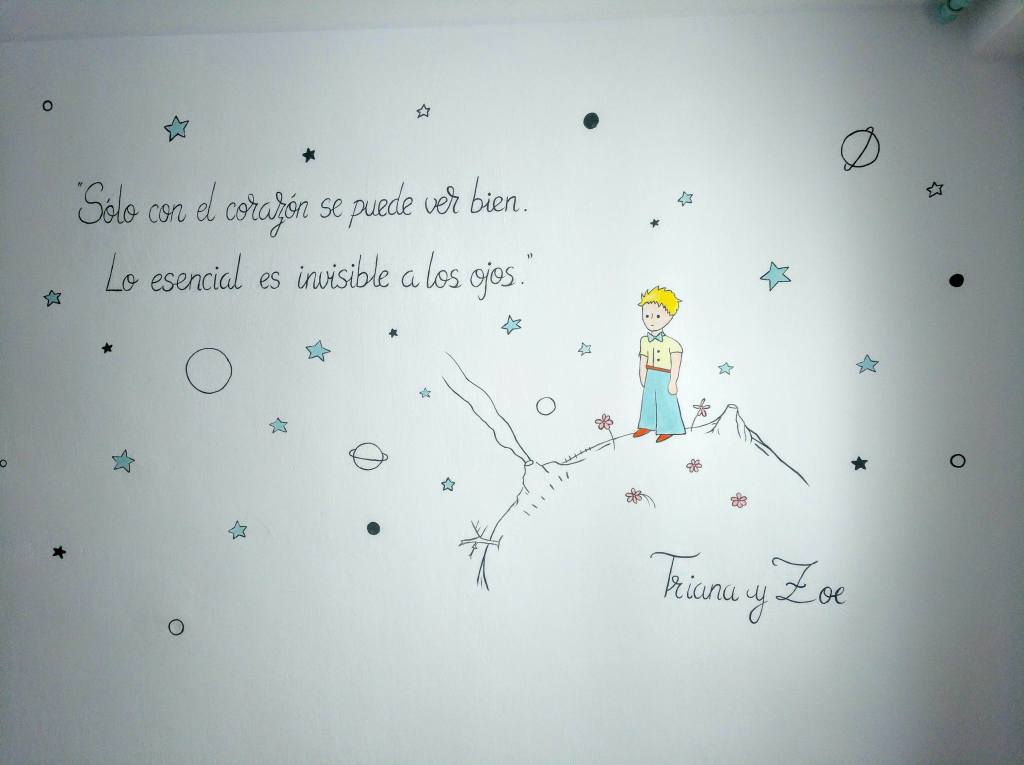 "Sólo con el corazón se puede ver bien.
Lo esencial es invisible a los ojos."
Triana y Zoe